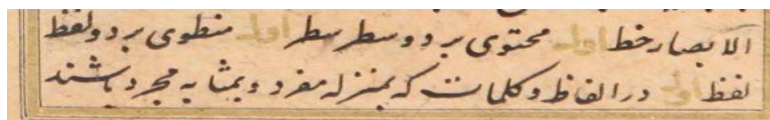 الابصار خط اول محتوی بر دو سطر سطر اول منطوی بر دو لفظ
لفظ اول در الفاظ و کلمات که بمنزله مفرد و بمثابه مجرد باشند